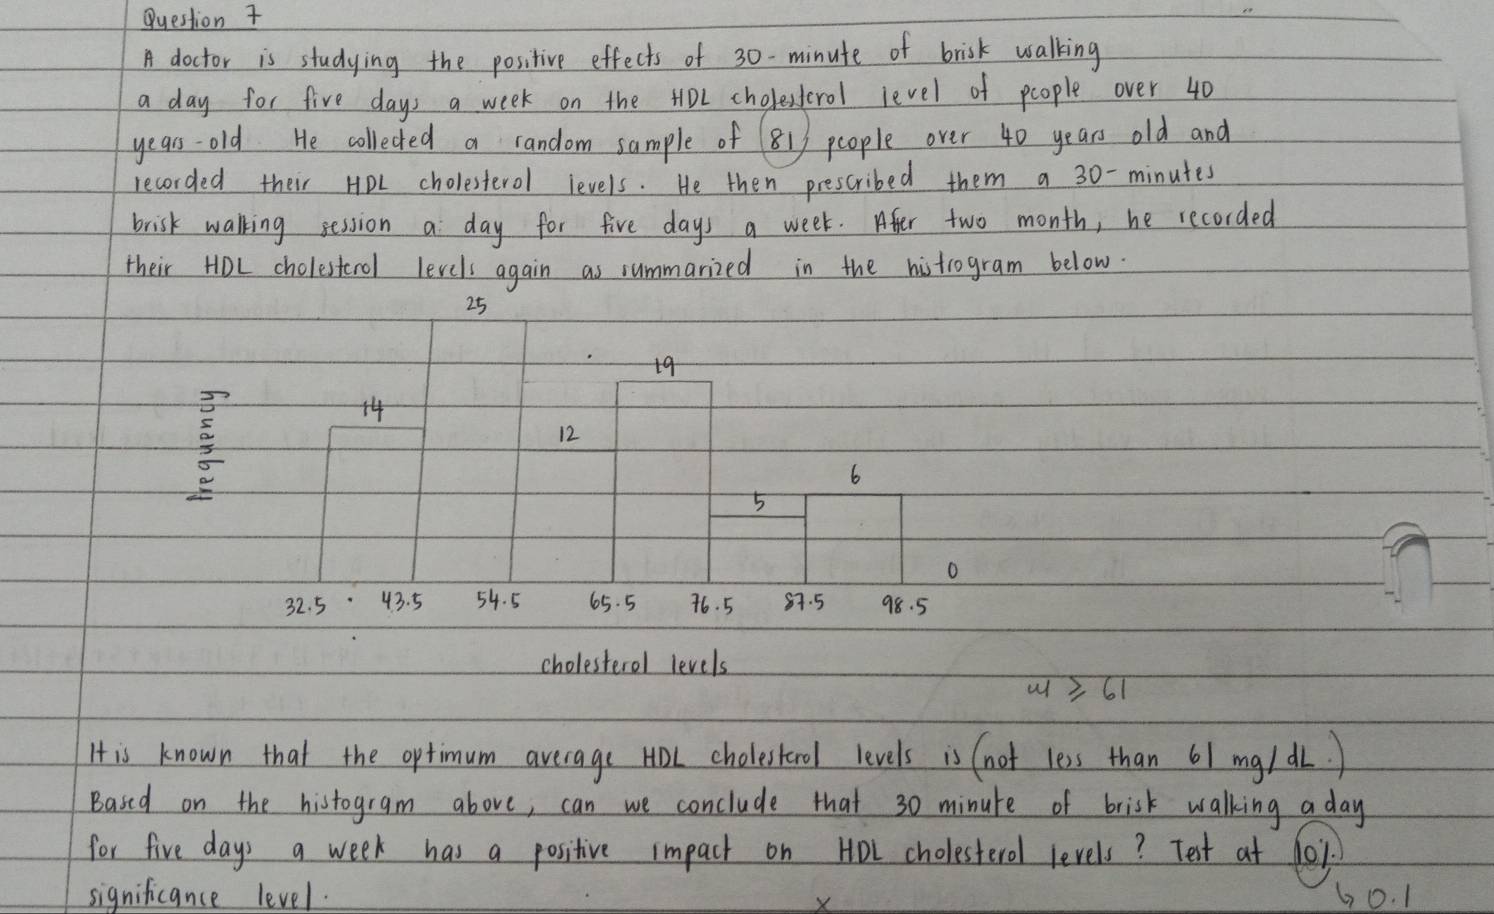 Question 7
A doctor is studying the positive effects of 30-minute of brisk walking
a day for five days a week on the HDL cholesterol level of people over 40
years-old. He collected a random sample of 81 people over 40 years old and
recorded their HDL cholesterol levels. He then prescribed them a 30-minutes
brisk walking session a day for five days a week. After two month, he recorded
their HDL cholesterol levels again as summarized in the histrogram below.
25
19
14
12
6
5
0
frequency
32.5 43.5 54.5 65.5 76.5 87.5 98.5
cholesterol levels
≥ 61
It is known that the optimum average HDL cholesterol levels is (not less than 61 mg/dL.)
Based on the histogram above, can we conclude that 30 minute of brisk walking a day
for five days a week has a positive impact on HDL cholesterol levels? Test at 10%
significance level.
x
↳ 0.1